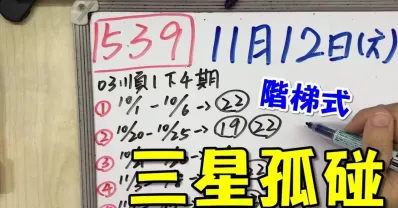 539 11月12日(六)
03順1下4期
階梯式
① 10/1 - 10/6 → 22
② 10/20 - 10/25 → 19 22
③
④
三星孤碰